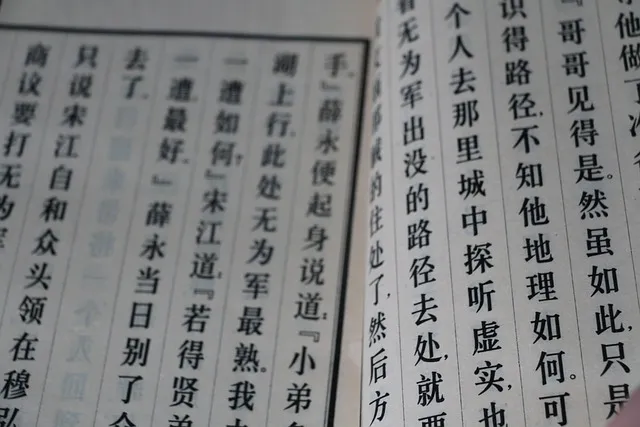 他做
『哥哥见得是。然虽如此,只是
识得路径,不知他地理如何。可
个人去那里城中探听虚实,也
看无为军出没的路径去处,就要
的住处了,然后方
手。』薛永便起身说道:『小弟
湖上行,此处无为军最熟。我
一遭如何?』宋江道:『若得贤弟
一遭最好。』薛永当日别了
去了。
只说宋江自和众头领在穆弘
商议要打无为军